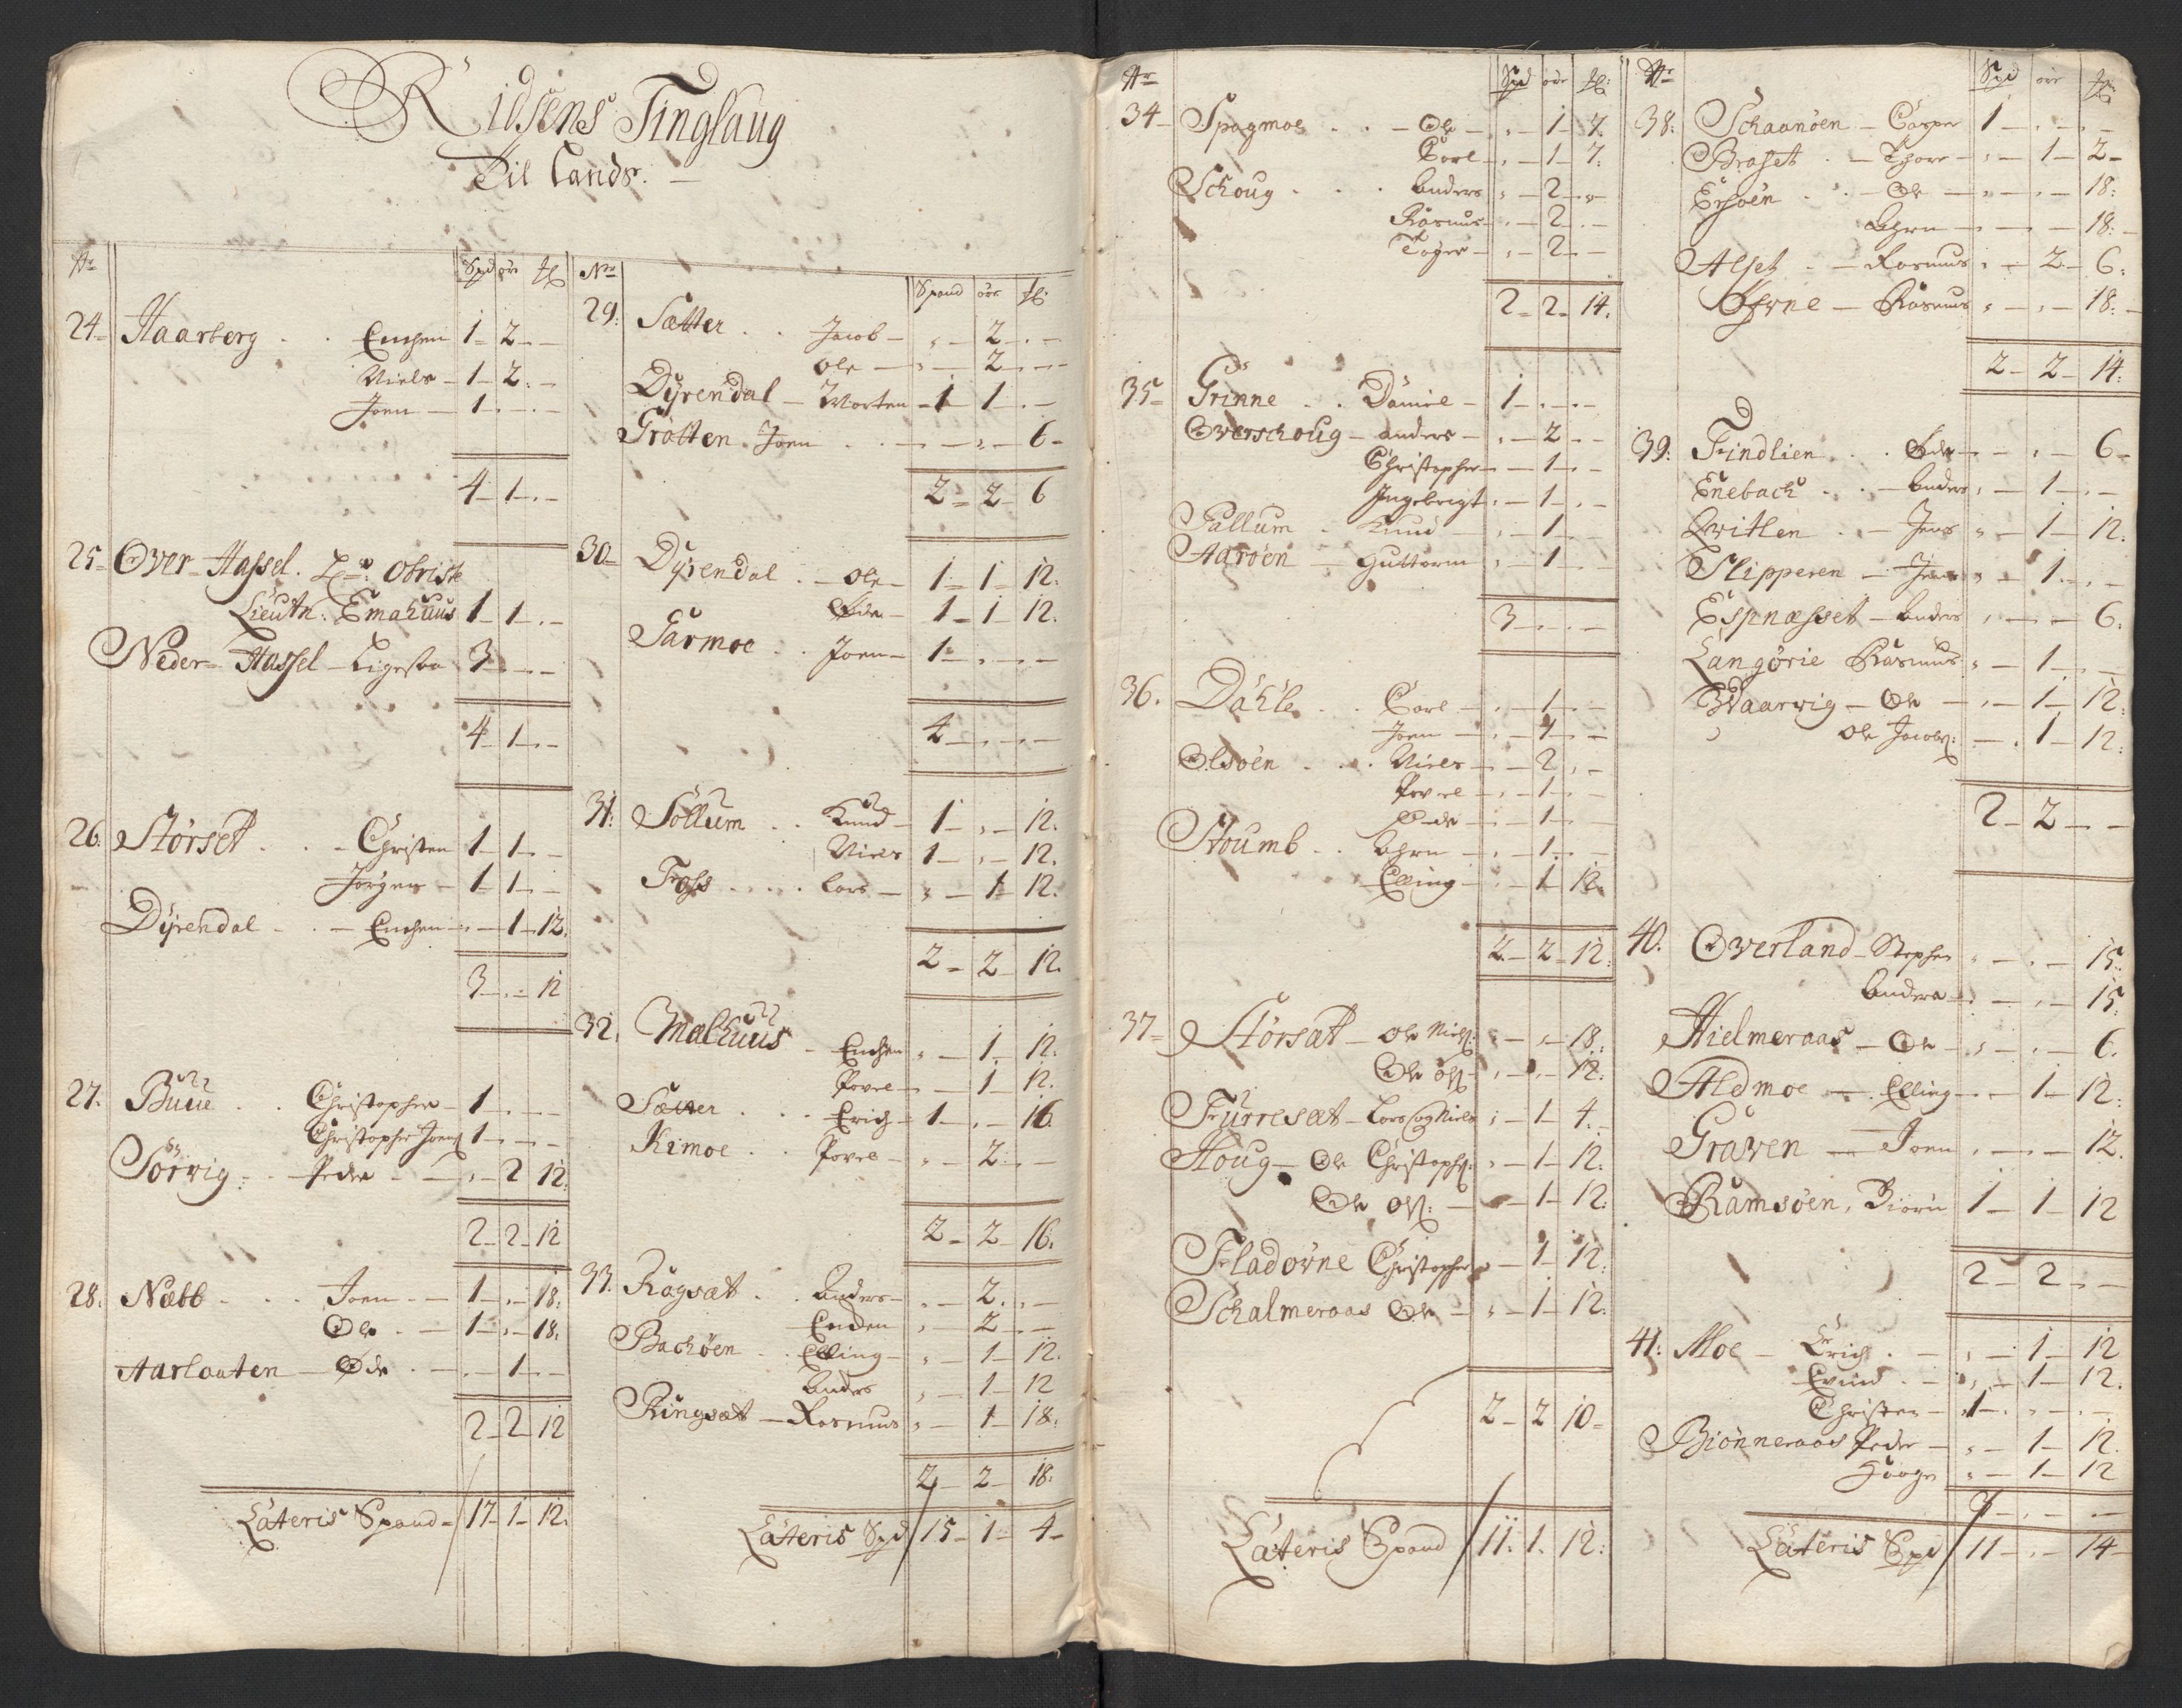 Ridsens Tinglaug
Til Lands.
Nr Spd øre
24 Haarberg Enchen 1 2
Niels 1 2
Joen 1
4 1
25 Over Hassel Obriste
Lieutn: Emahuus 1 1
Neder Hassel Ligesaa 3
4 1
26. Størset Christen 1 1
Jørgen 1 1
Dÿrendal Enchen 1 12.
3 12
27. Buue Christopher 1
Christopher Joens 1
Sørvig Peder 2 12.
2 2 12
28. Næbb Joen 1 18.
Ole 1 18.
Aarlaaten Øde 1
2 2 12
Lateris Spand 17 1 12.
Nr Spand øre
29. Sætter Jacob 2
Ole 2
Dÿrendal Morten 1 1
Grøtten Joen 6
2 2 6
30 Dÿrendal Ole 1 1 12.
Øde 1 1 12.
Garmoe Joen 1
4
31. Sollum Knud 1 12.
Niels 1 12.
Lars 1 12.
2 2 12.
32. Melhuus Enchen 1 12.
Povel 1 12.
Sæter Erich 1 16.
Kimoe Povel 2
2 2 16.
33. Ragsæt Anders 2
Enden 2
Bachøen Elling 1 12.
Anders 1 12
Ringsæt Rasmus 1 18.
2 2 18.
Lateris Spd 15 1 4
Nr Spd øre
34 Spagmoe Ole 1 7.
Carl 1 7.
Schoug Anders 2
Rasmus 2
Tøger 2
2 2 14.
35 Grinne Daniel 1
Overschoug Anders 2
Christopher 1
Ingebrigt 1
Gallum Knud 1
Aarøen Guttorm 1
3
36. Dahle Carl 1
Joen 4
Olsøen Niels 2
Povel 1
Øde 1
Stoumb Ahrn 1
Elling 1 12.
2 2 12.
37 Størsæt Ole Niels: 18.
Ole Ols: 12.
Furresæt Lars og Niels 1 4.
Houg Ole Christophs: 1 12.
Ole Ols: 1 12.
Fladørne Christopher 1 12.
Schalmeraas Ole 1 12.
2 2 10
Lateris Spand 11. 1. 12.
Nr Spd øre
38. Schaanøen Casper 1
Braset Thore 1 2
Ersøen Ole 18.
Ahrn 18.
Alset Rasmus 2 6.
Rasmus 18.
2 2 14.
39. Findlien Øde 6
Enebach Anders 1
Qvitlen Jens 1 12.
Slipperen Jens 1
Espnæsset Anders 6.
Langørie Rasmus 1
Waarvig Ole 1 12.
Ole Jacobs: 1 12.
2 2
40. Overland Stephen 15.
Anders 15.
Hielmeraas Ole 6.
Aldmoe Elling 1 12.
Graven Joen 12.
Ramsøen, Biørn 1 1 12
2 2
41. Moe Erich 1 12
Evind 1 12.
Christen 1
Biønneraas Peder 1 12.
Haagen 1 12
Lateris Spd 11 14